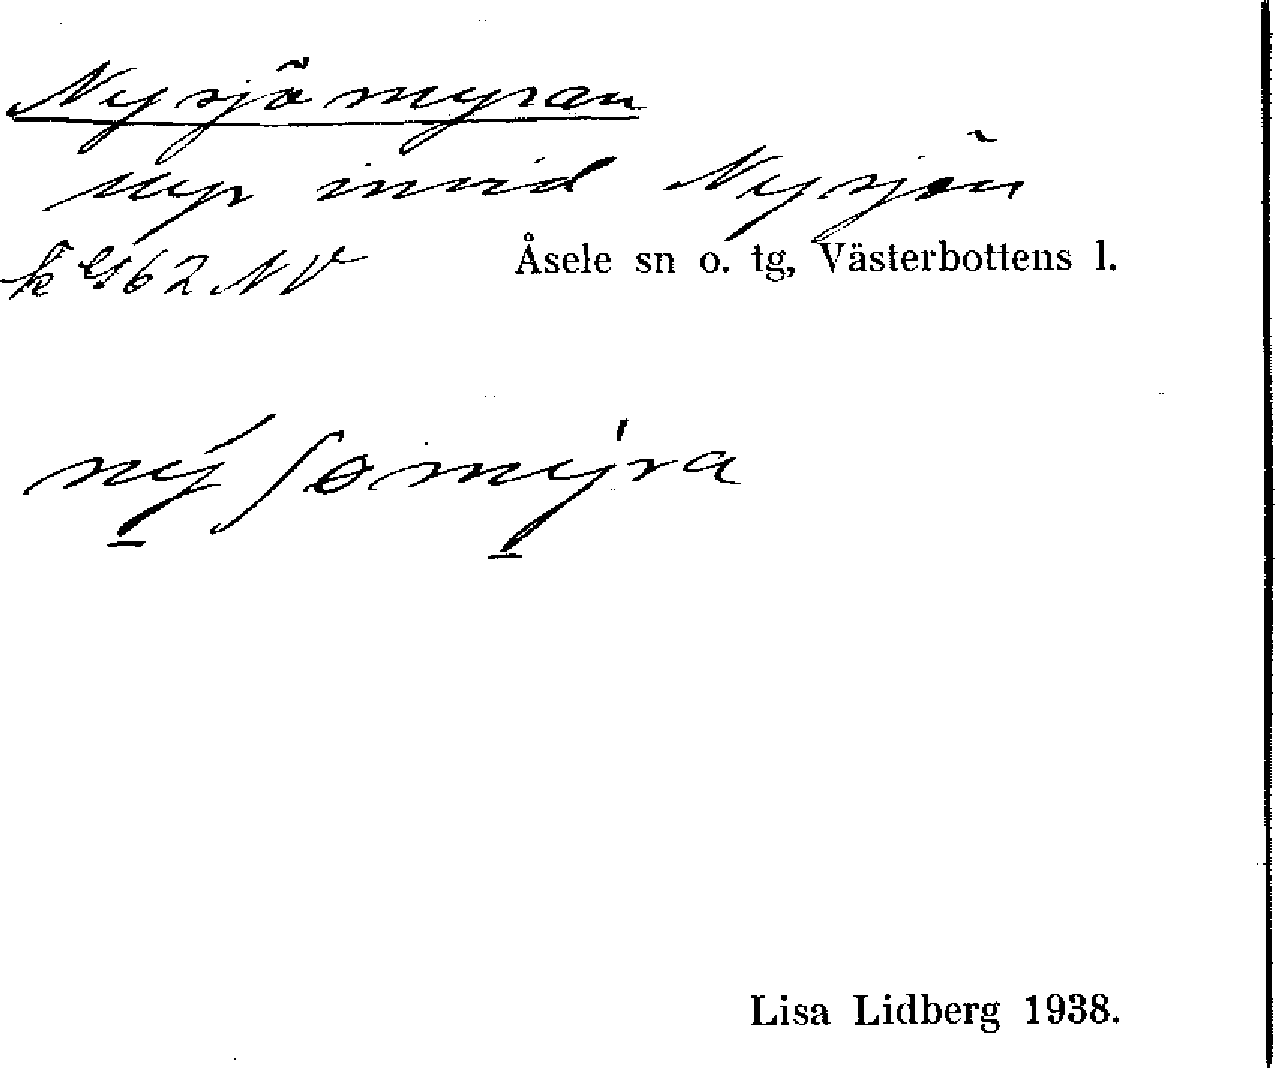 Nysjömyran
myr invid Nysjön
k G62 NV
Åsele sn o. tg, Västerbottens l.
ný̱ʃømý̱ra
Lisa Lidberg 1938.